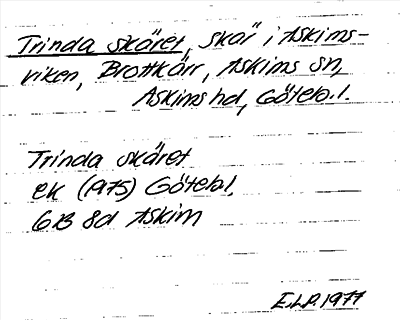 Trinda skäret, skär i Askims-
viken, Brottkärr, Askims sn,
Askims hd, Göteb. l.
Trinda skäret
ek (1975) Göteb l,
6B 8d Askim
E.L.P. 1977